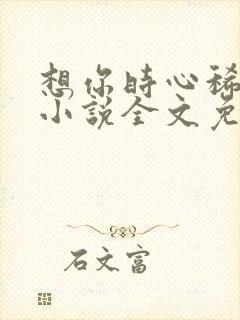 想你时心稀
小说全文免
石文富